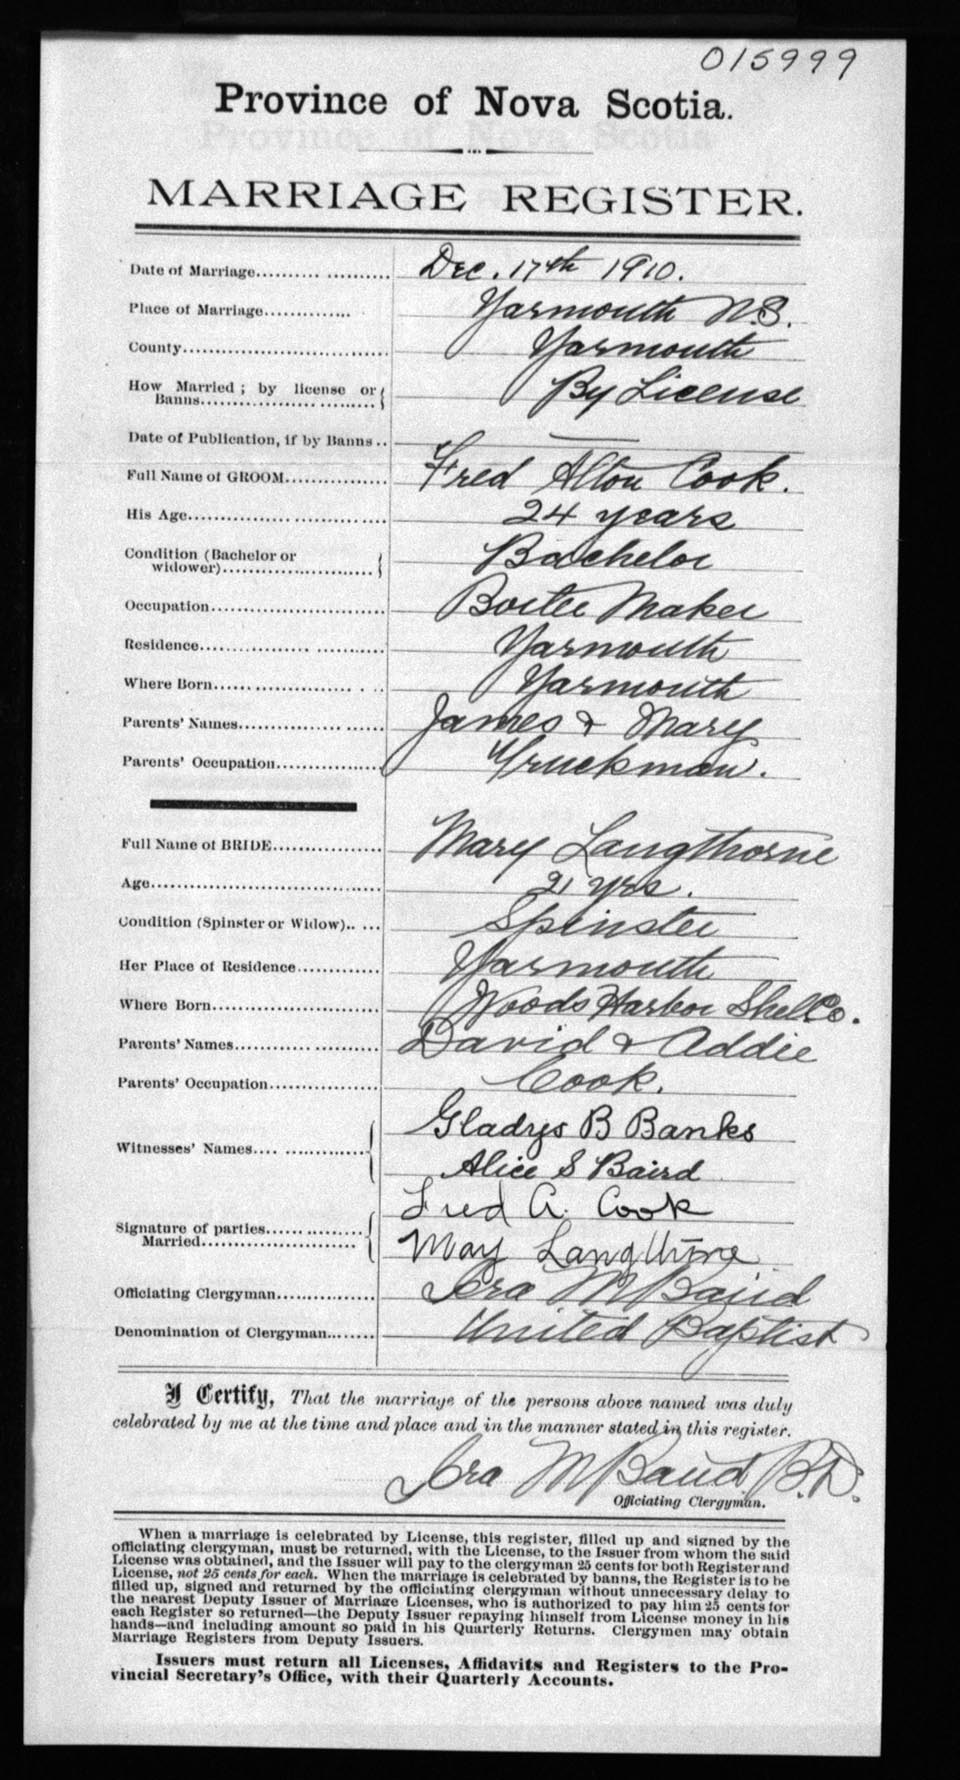 015999
Province of Nova Scotia.
MARRIAGE REGISTER.
Date of Marriage.......... .......... Dec. 17th 1910.
Place of Marriage.............. Yarmouth N.S.
County.................................... Yarmouth
How Married; by license or
Banns.................... .......... { By License
Date of Publication, if by Banns .. —
Full Name of GROOM................. Fred Alton Cook.
His Age.................................. 24 years
Condition (Bachelor or
widower)............................ } Bachelor
Occupation............................... Boiler Maker
Residence................. ........... Yarmouth
Where Born...................... . .. Yarmouth
Parents' Names................ ...... James & Mary
Parents' Occupation.................. Truckman.
Full Name of BRIDE.................. Mary Langthorne
Age........................................ 21 yrs.
Condition (Spinster or Widow).. ... Spinster
Her Place of Residence.............. Yarmouth
Where Born............................. Woods Harbor Shel. Co.
Parents' Names............ ........... David & Addie
Parents' Occupation.................. Cook.
Witnesses' Names.... .............. { Gladys B Banks
Alice S Baird
Signature of parties...... ...........
Married......................... { Fred A. Cook
May Langthorne
Officiating Clergyman................ Ira M Baird
Denomination of Clergyman........ United Baptist
I Certify, That the marriage of the persons above named was duly
celebrated by me at the time and place and in the manner stated in this register.
Ira M Baird B.D.
Officiating Clergyman.
When a marriage is celebrated by License, this register, filled up and signed by the
officiating clergyman, must be returned, with the License, to the Issuer from whom the said
License was obtained, and the Issuer will pay to the clergyman 25 cents for both Register and
License, not 25 cents for each. When the marriage is celebrated by banns, the Register is to be
filled up, signed and returned by the officiating clergyman without unnecessary delay to
the nearest Deputy Issuer of Marriage Licenses, who is authorized to pay him 25 cents for
each Register so returned—the Deputy Issuer repaying himself from License money in his
hands—and including amount so paid in his Quarterly Returns. Clergymen may obtain
Marriage Registers from Deputy Issuers.
Issuers must return all Licenses, Affidavits and Registers to the Pro-
vincial Secretary's Office, with their Quarterly Accounts.